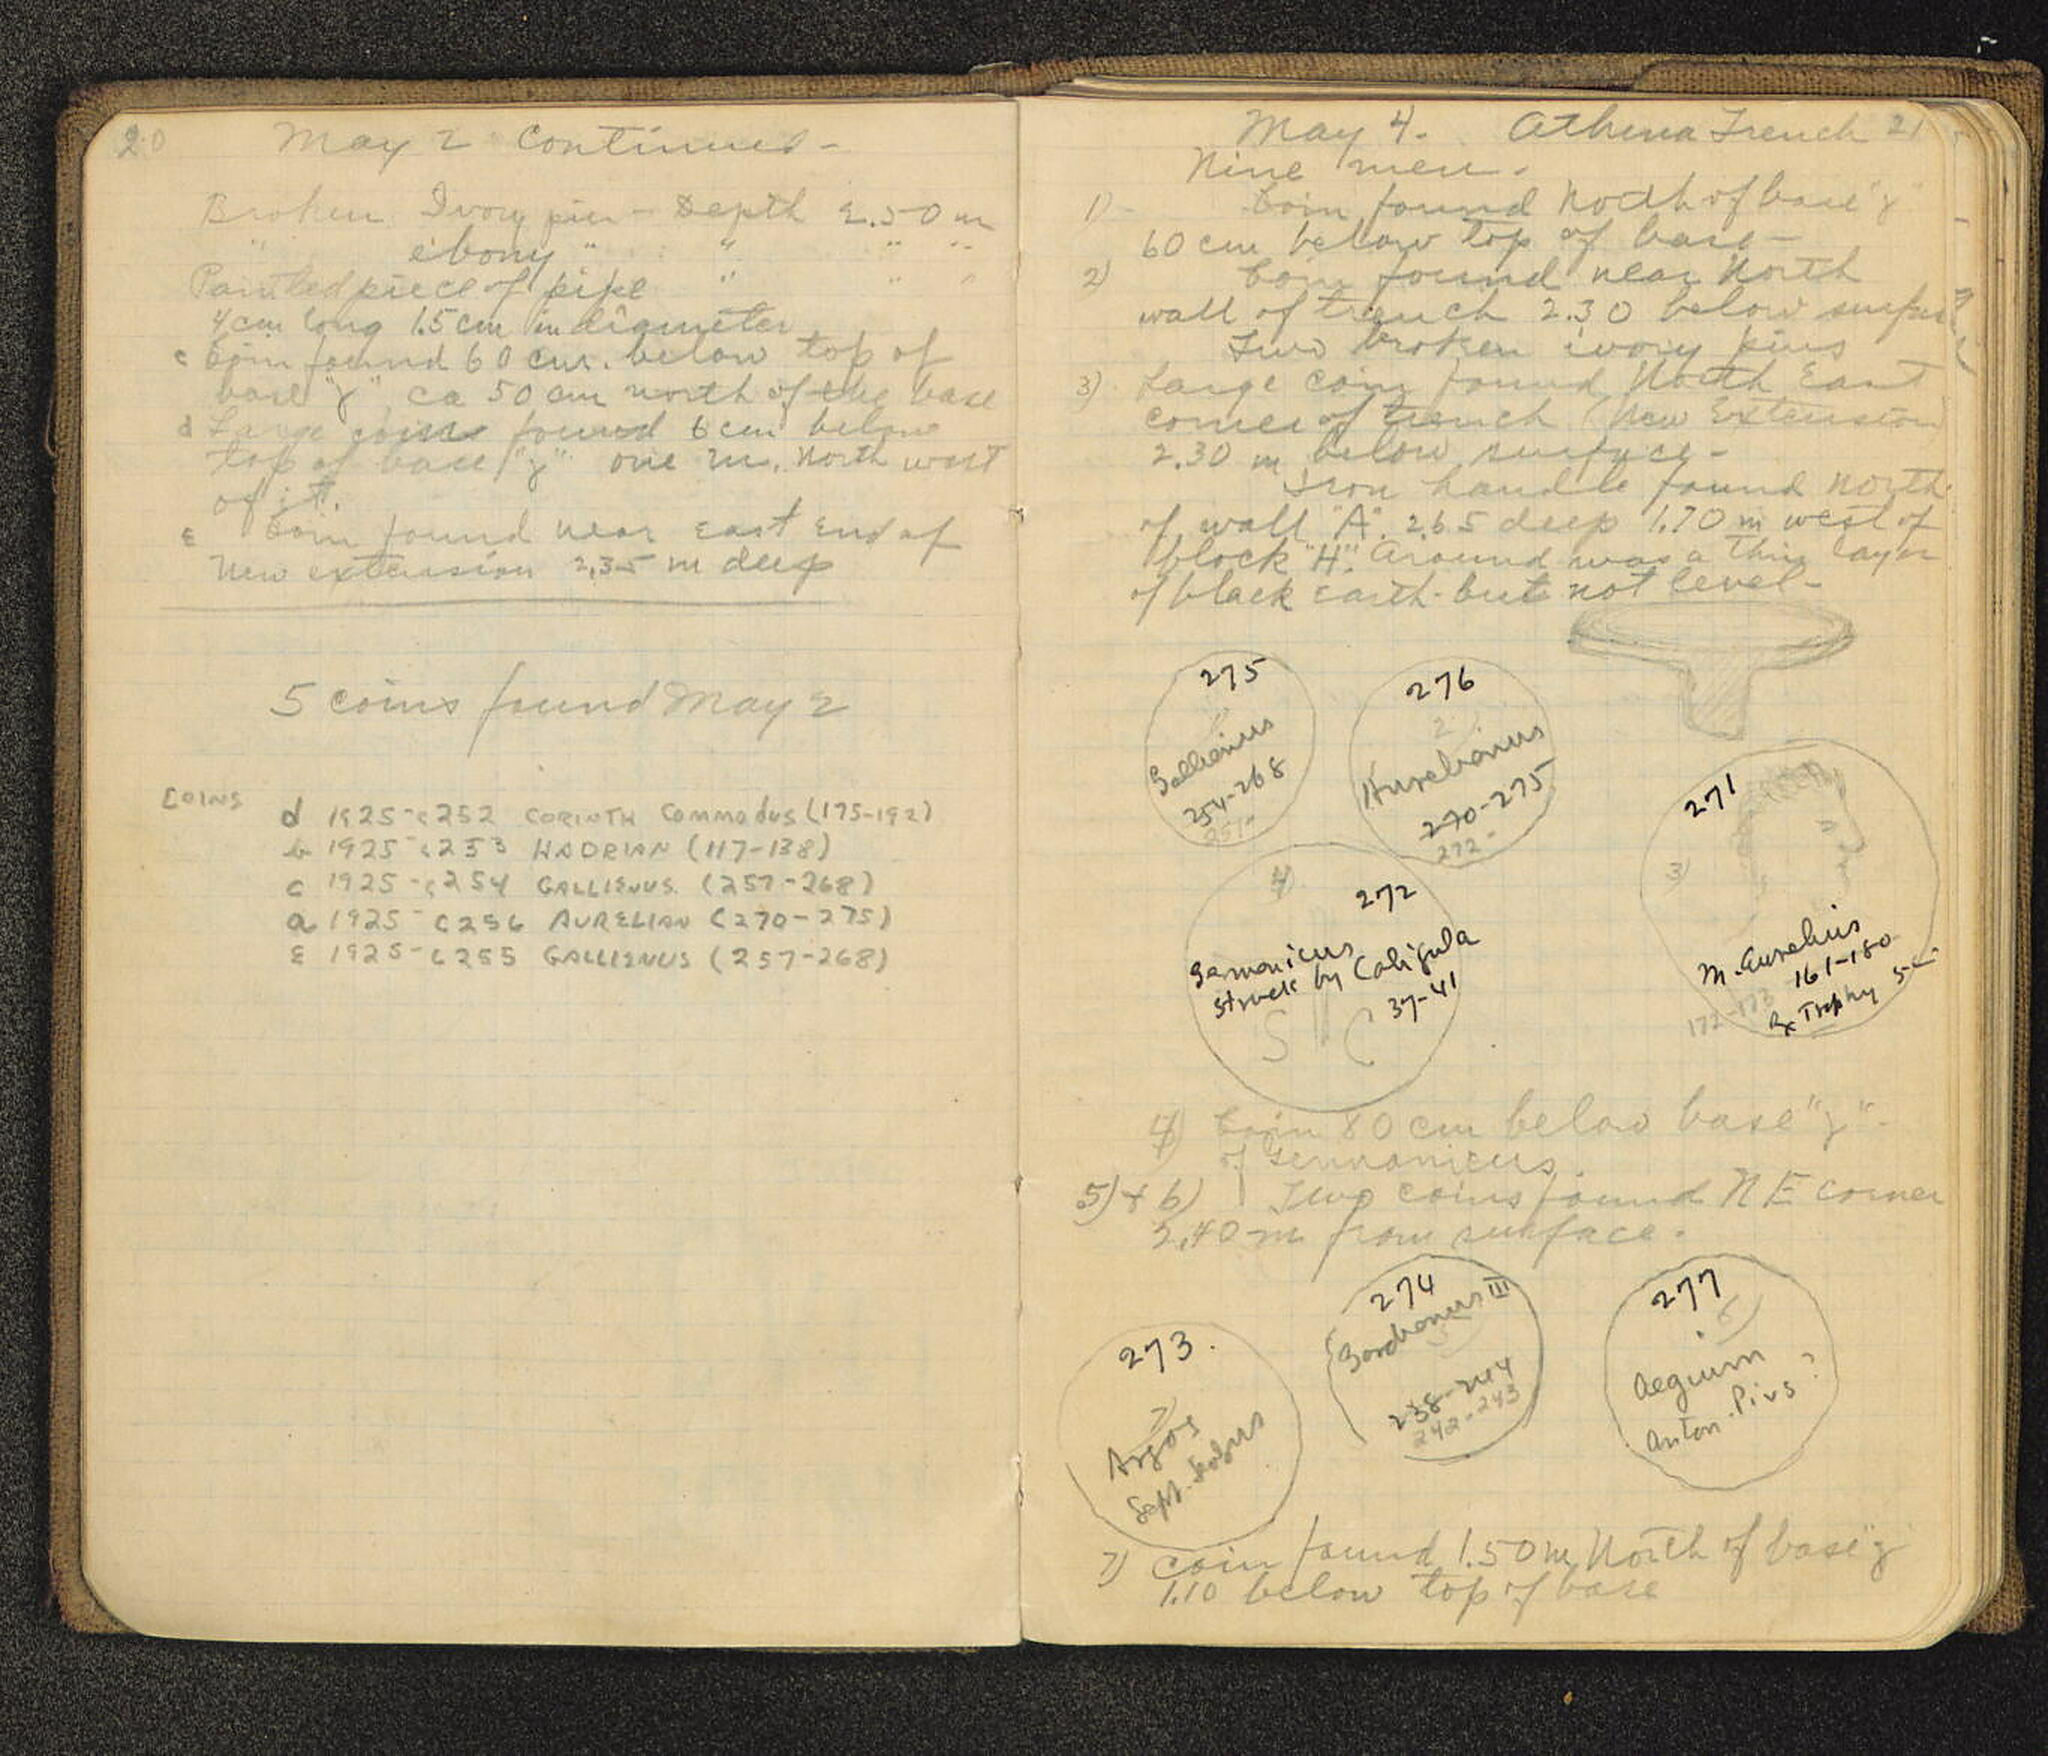 20 May 2 Continued -
Broken Ivory pin - Depth 2.50 m
" ebony " " " "
Painted piece of pipe " " "
4 cm long 1.5 cm in diameter
c Coin found 60 cm. below top of
base "γ", ca 50 cm north of the base
d Large coin found 6 cm below
top of base "γ" one m. North west
of it.
E Coin found near east end of
New extension 2.35 m deep
5 coins found May 2
COINS d 1925-c252 CORINTH Commodus (175-192)
b 1925-c253 HADRIAN (117-138)
c 1925-c254 GALLIENUS (257-268)
a 1925-c256 AURELIAN (270-275)
E 1925-c255 GALLIENUS (257-268)
May 4. Athena Trench 21
Nine men.
1) Coin found North of base "γ"
60 cm below top of base -
2) Coin found near North
wall of trench 2.30 below surface
Two broken ivory pins
3) Large coin found North East
corner of trench (New Extension)
2.30 m below surface -
Iron handle found North
of wall "A". 2.65 deep 1.70 m west of
block "H". Around was a thin layer
of black earth - but not level -
275
Gallienus
254-268
257-
276
2)
Aurelianus
270-275
272-
271
3)
M. Aurelius
161-180
172-173
Rx Trophy
4)
272
Germanicus
struck by Caligula
37-41
S C
4) Coin 80 cm below base "γ" -
of Germanicus.
5) + 6) Two coins found N E corner
2.40 m from surface.
274
Gordianus III
5
238-244
242-243
277
6)
Aegium
Anton. Pius ?
273.
7)
Argos
Sept. Severus
7) Coin found 1.50 m North of base "γ"
1.10 below top of base